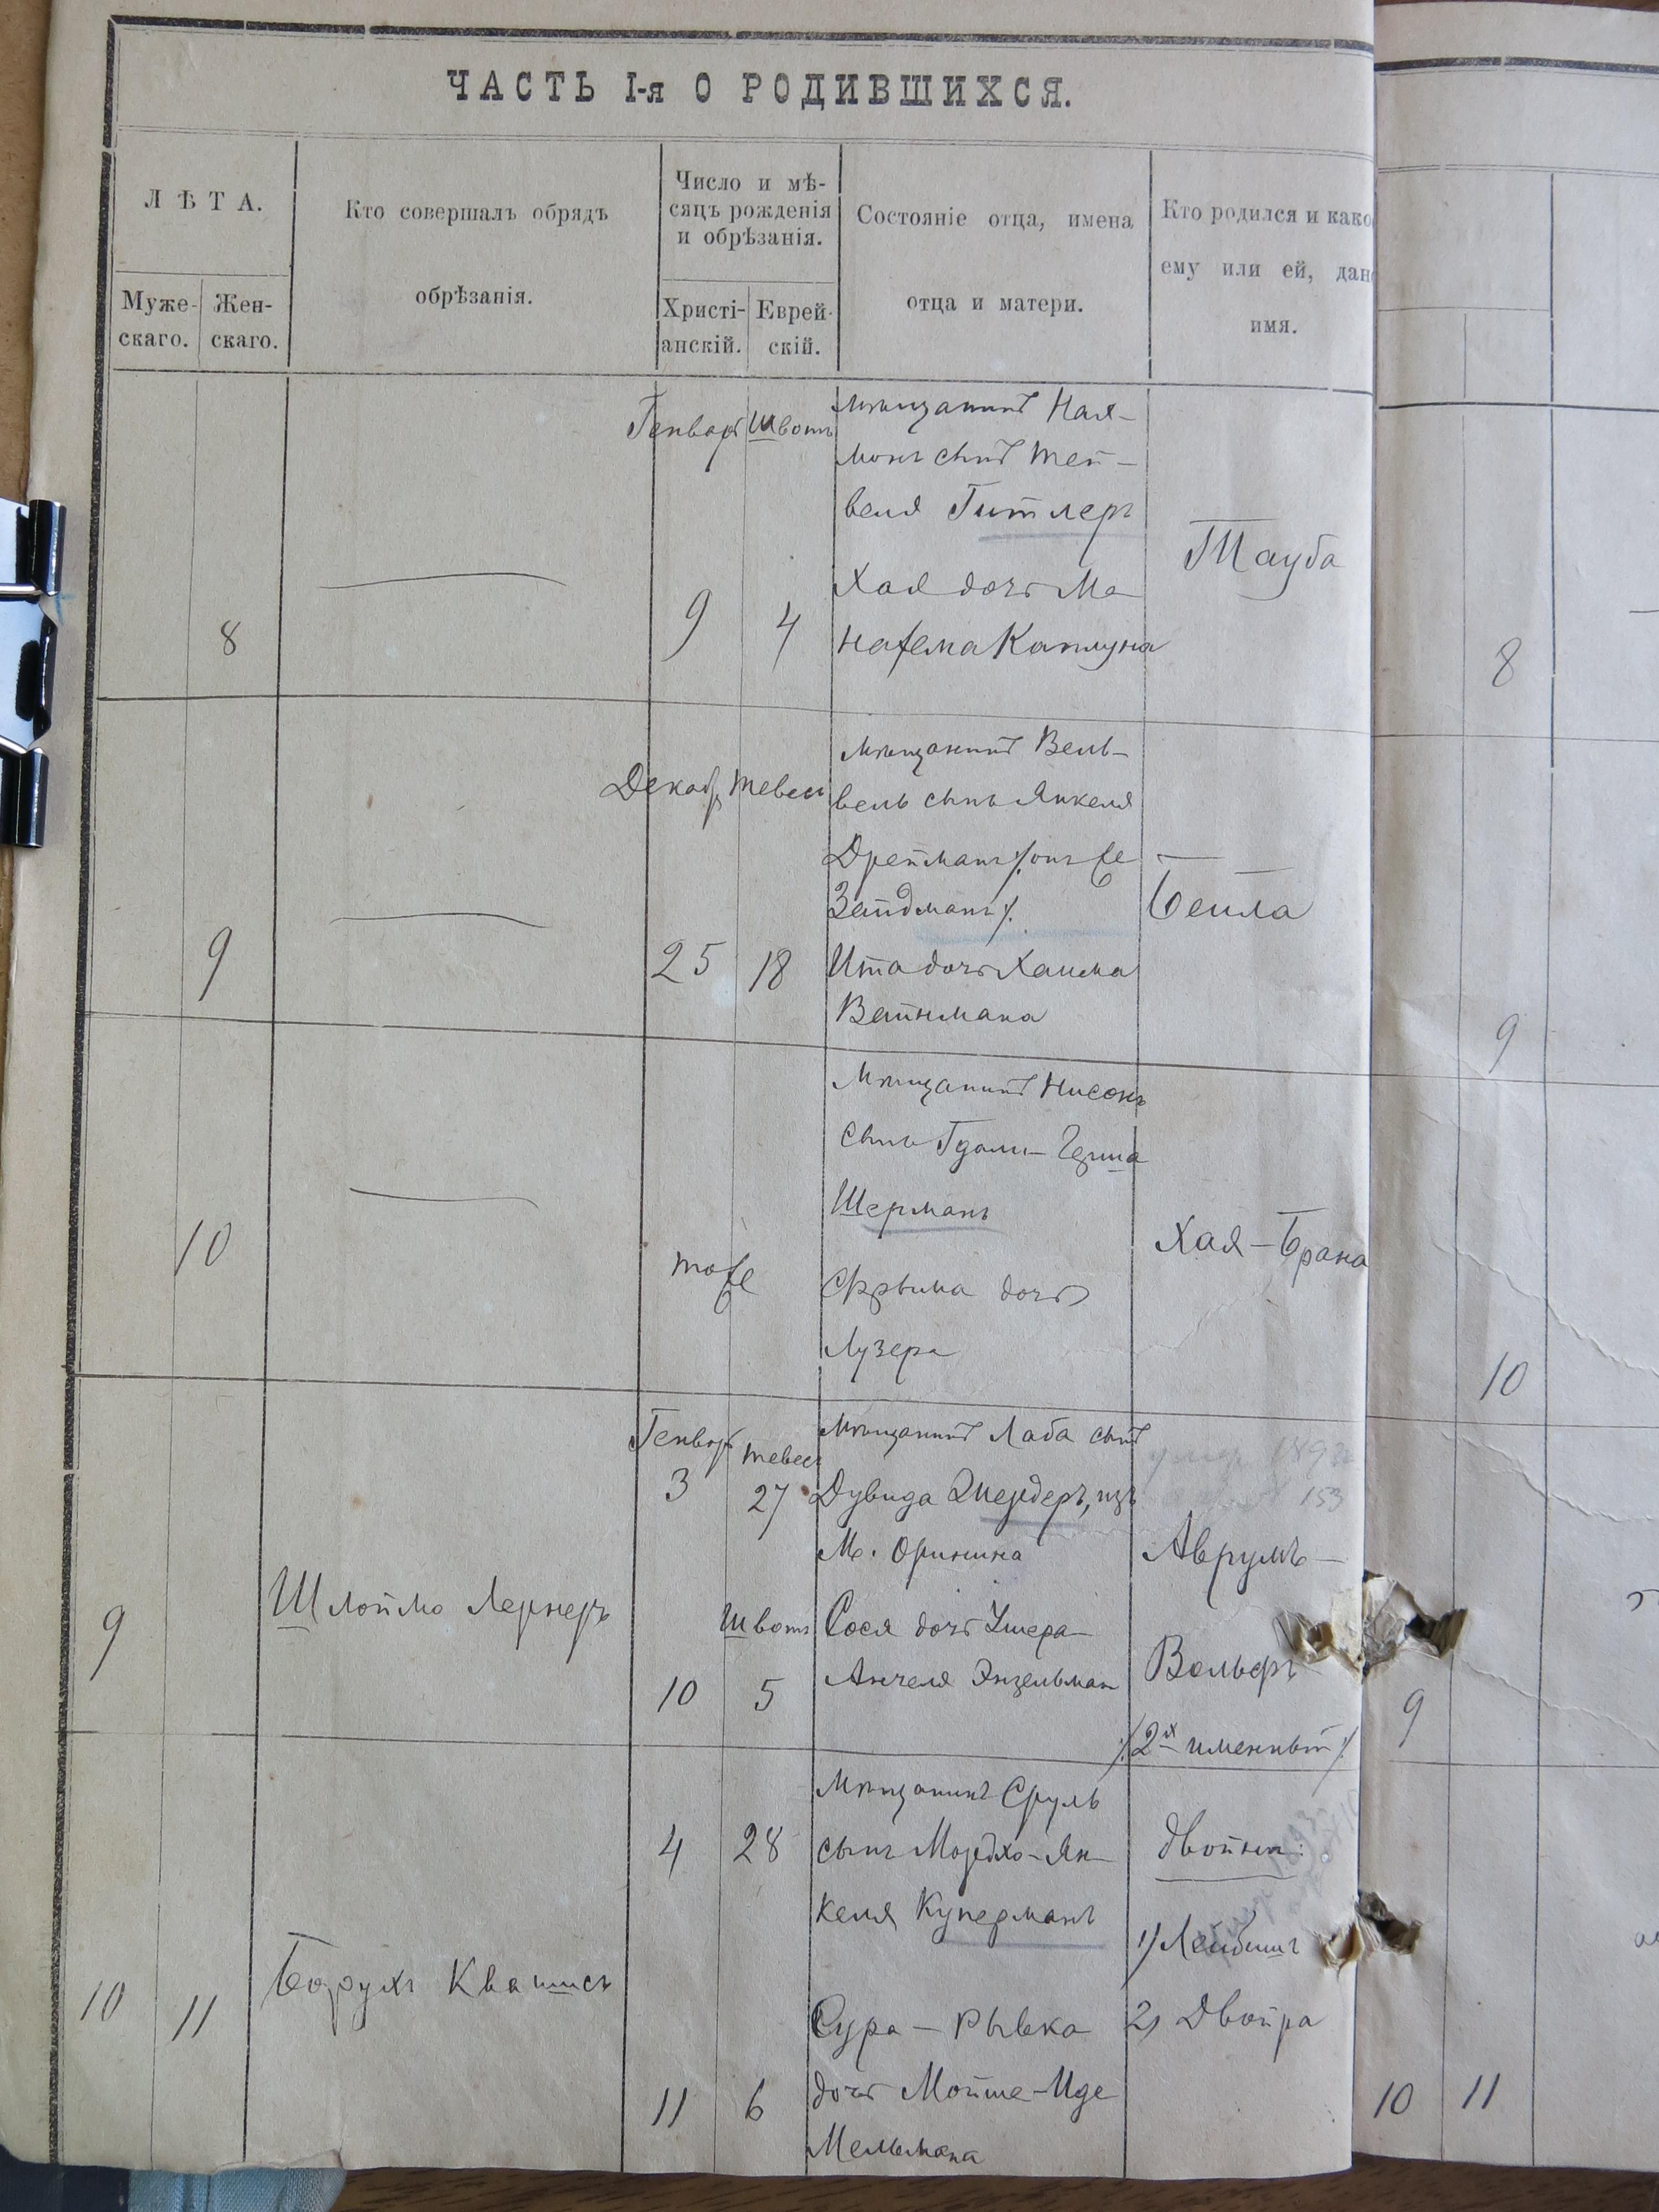 ЧАСТЬ I-я О РОДИВШИХСЯ.
ЛѢТА.
Муже-
скаго.
Жен-
скаго.
Кто совершалъ обрядъ
обрѣзанія.
Число и мѣ-
сяцъ рожденія
и обрѣзанія.
Христі-
анскій.
Еврей-
скій.
Состояніе отца, имена
отца и матери.
Кто родился и како
ему или ей, дан
имя.
8
Генваръ
9
Швотъ
4
мѣщанинъ
сынъ
веля Гитлеръ
Хая дочь Ме
нахема Каплуна
Тауба
8
9
Декабр
25
Тевесъ
18
мѣщанинъ Вель-
вель сынъ Янкеля
Дрейманъ /: онъ же
Зайдманъ :/
Ита дочь Хаима
Вайнмана
Бейла
9
10
тоже
мѣщанинъ Нисонъ
сынъ Гдали-Герша
Шерманъ
Фрыма дочь
Лузера
Хая-Брана
10
9
Шлойма Лернеръ
Генвар
3
10
Тевесъ
27
Швотъ
5
мѣщанинъ Лейба сынъ
Дувида Шнейдеръ, изъ
М. Оринина
Сося дочь Ушера-
Анчеля Энзельман
Аврумъ-
Вольфъ
/: 2хъ именный :/
153
9
10
11
Борухъ Квашисъ
4
11
28
6
мѣщанинъ Сруль
сынъ Мордхо-Ян-
келя Куперманъ
Сура-Рывка
дочь Мойше-Иде
Мельмана
двойня:
1) Лейбишъ
2) Двойра
10
11